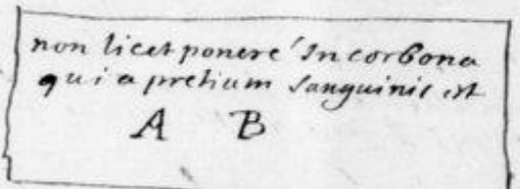 non licet ponere In corbona
qui a pretium sanguinis est
A B